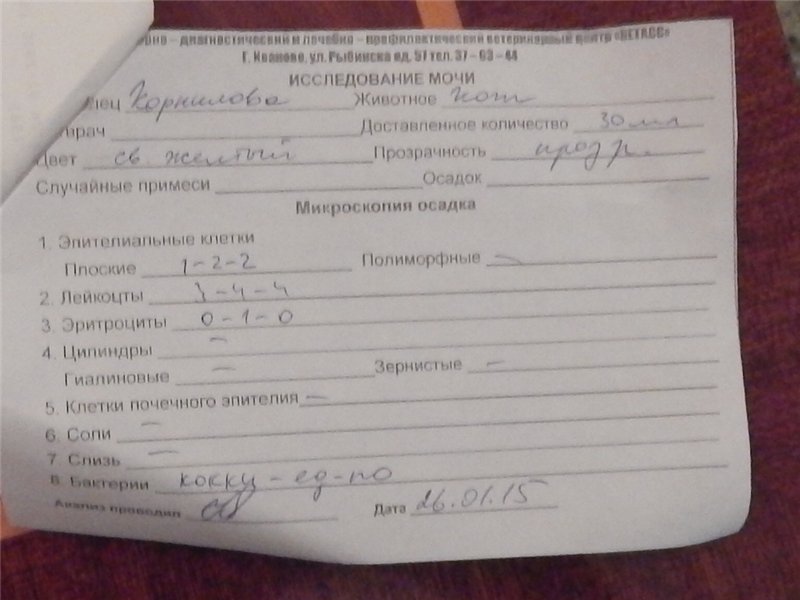 диагностический и лечебно – профилактический ветеринарный центр «ВЕТАСС»
Г. Иваново, ул. Рыбинска ед. 57 тел. 37 – 63 – 44
ИССЛЕДОВАНИЕ МОЧИ
лец Корнилова Животное кот
врач Доставленное количество 30 мл
Цвет св. желтый Прозрачность прозр.
Случайные примеси Осадок
Микроскопия осадка
1. Эпителиальные клетки
Плоские 1-2-2 Полиморфные –
2. Лейкоцты 3-4-4
3. Эритроциты 0-1-0
4. Цилиндры –
Гиалиновые – Зернистые –
5. Клетки почечного эпителия –
6. Соли –
7. Слизь –
8. Бактерии кокки - ед-но
Анализ проводил Дата 26.01.15